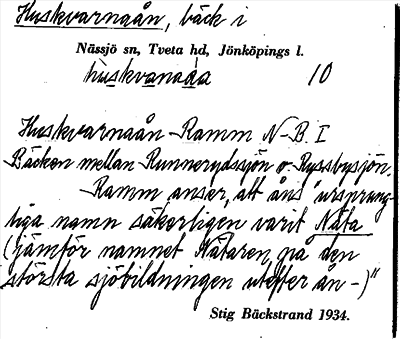 Huskvarnaån, bäck i
Nässjö sn, Tveta hd, Jönköpings l.
huskvanaåa 10
Huskvarnaån - Ramm N-B. I
Bäcken mellan Runnerydssjön o. Ryssbysjön.
Ramm anser, att åns "ursprung-
liga namn säkerligen varit Näta
(jämför namnet Nätaren på den
största sjöbildningen utefter ån -)"
Stig Bäckstrand 1934.